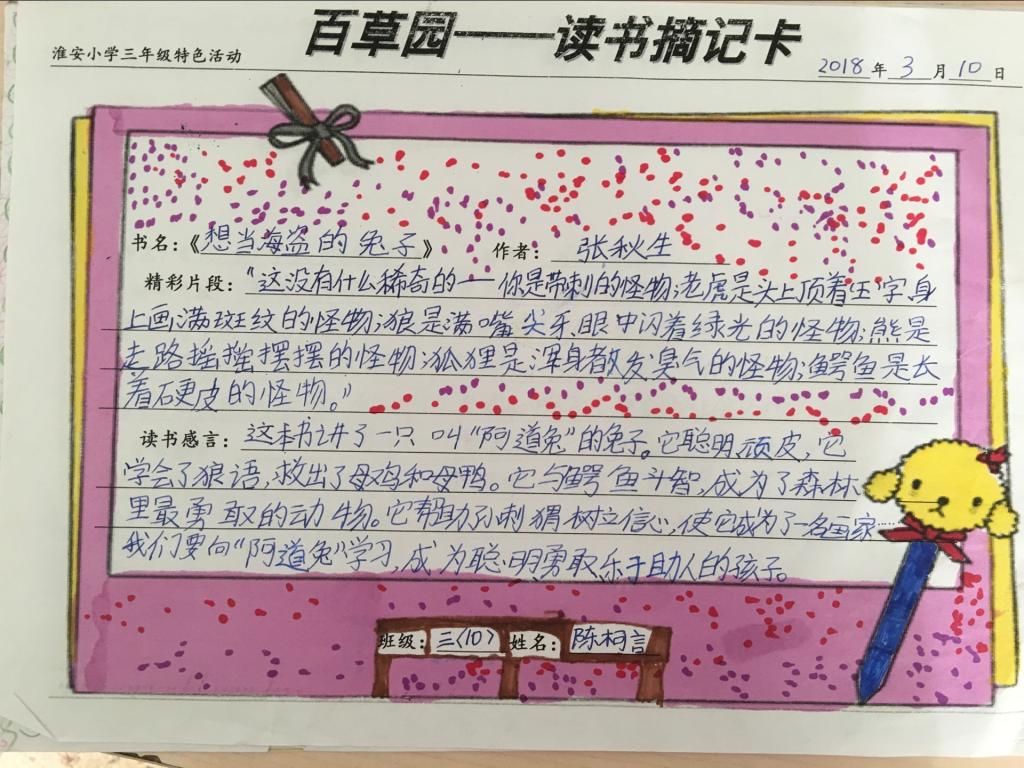 百草园——读书摘记卡
淮安小学三年级特色活动
2018年3月10日
书名：《想当海盗的兔子》 作者：张秋生
精彩片段：“这没有什么稀奇的——你是带刺的怪物；老虎是头上顶着‘王’字，身
上画满斑纹的怪物；狼是满嘴尖牙，眼中闪着绿光的怪物；熊是
走路摇摇摆摆的怪物；狐狸是浑身散发臭气的怪物；鳄鱼是长
着硬皮的怪物。”
读书感言：这本书讲了一只叫“阿道兔”的兔子。它聪明，顽皮，它
学会了狼语，救出了母鸡和母鸭。它与鳄鱼斗智，成为了森林
里最勇敢的动物。它帮助小刺猬树立信心，使它成为了一名画家……
我们要向“阿道兔”学习，成为聪明勇敢乐于助人的孩子。
班级：三〈10〉 姓名：陈柯言